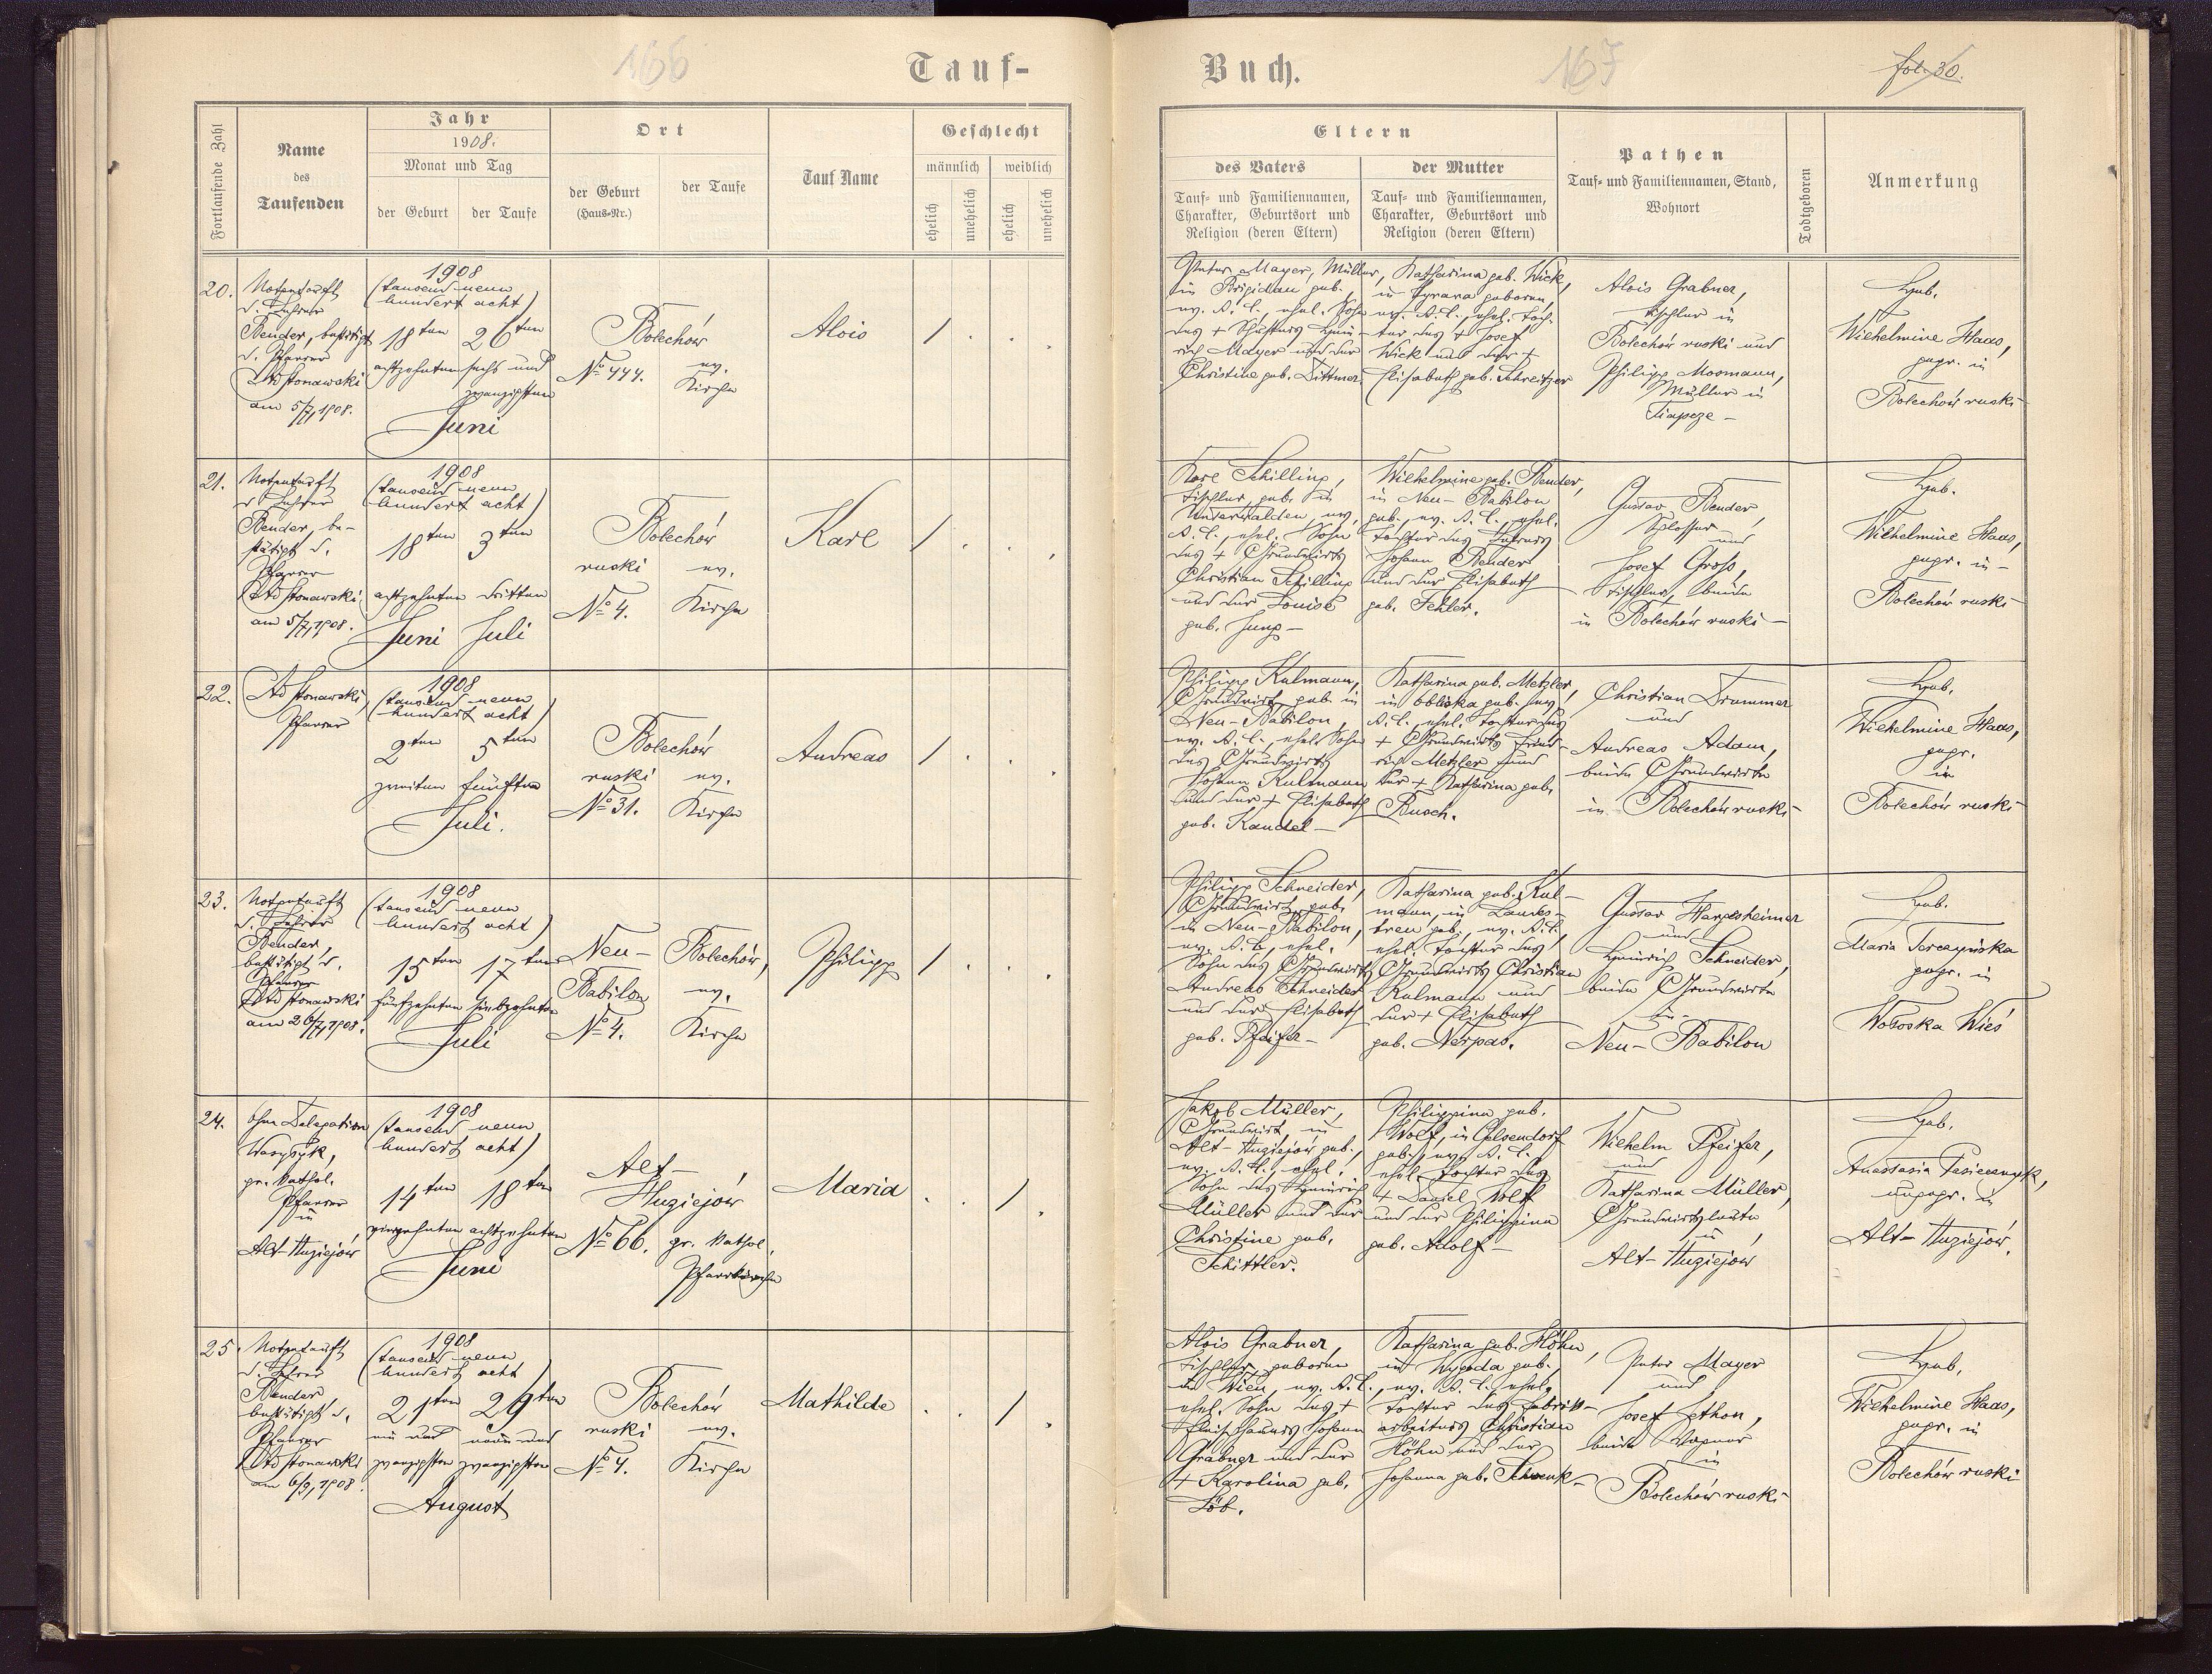 166
Tauf-
Fortlaufende Zahl
Name
des
Taufenden
Jahr
1908.
Monat und Tag
der Geburt
der Taufe
Ort
der Geburt
(Haus-Nr.)
der Taufe
Tauf Name
Geschlecht
männlich
weiblich
ehelich
unehelich
ehelich
unehelich
20.
Nothtauft
d. Lehrer
Bender, bestätigt
d. Pfarrer
am 5/7, 1908.
1908
(tausend neun
hundert acht)
18ten 26ten
achtzehnten sechs und
zwanzigsten
Juni
Bolechów
No 444.
ev.
Kirche
Alois
/ . . .
21.
Nothtauft
d Lehrer
Bender, be-
stätigt d.
Pfarrer
am 5/7, 1908.
1908
(tausend neun
hundert acht)
18ten 3ten
achtzehnten dritten
Juni Juli
Bolechów
ruski ev.
No 4. Kirche
Karl
/ . . .
22.
Pfarrer
1908
(tausend neun
hundert acht)
2ten 5ten
zweiten fünften
Juli.
Bolechów
ruski ev.
No 31. Kirche
Andreas
/ . . .
23.
Nothtauft
d. Lehrer
Bender,
bestätigt d.
Pfarrer
am 26/7, 1908.
1908
(tausend neun
hundert acht)
15ten 17ten
fünfzehnten siebzehnten
Juli
Neu-
Babilon
No 4.
Bolechów,
ev.
Kirche
Philipp
/ . . .
24.
ohne Delegation
gr. kathol.
Pfarrer
in
Alt-Huziejów
1908
(tausend neun
hundert acht)
14ten 18ten
vierzehnten achtzehnten
Juni
Alt-
Huziejów
No 66. gr. kathol.
Pfarrkirche
Maria
. . / .
25.
Nothtauft
d. Lehrer
Bender,
bestätigt d.
Pfarrer
am 6/9, 1908.
1908
(tausend neun
hundert acht
21ten 29ten
ein und neun und
zwanzigsten zwanzigsten
August
Bolechów
ruski ev.
No 4. Kirche
Mathilde
. . / .
Buch.
167
fol. 30.
Eltern
des Vaters
Tauf- und Familiennamen,
Charakter, Geburtsort und
Religion (deren Eltern)
der Mutter
Tauf- und Familiennamen,
Charakter, Geburtsort und
Religion (deren Eltern)
Pathen
Tauf- und Familiennamen, Stand,
Wohnort
Todtgeboren
Anmerkung
Peter Mayer, Müller,
in Brigidau geb.
ev. A. C., ehel. Sohn
des + Schusters Hein-
rich Mayer und der
Christine geb. Dittmer.
Katharina geb. Wick,
in geboren,
ev. A. C., ehel. Toch-
ter des + Josef
Wick und der +
Elisabeth geb. Schreitzer
Alois Grabner,
Tischler in
Bolechów ruski und
Philipp Mosmann,
Müller in
Heb.
Wilhelmine Haas,
gepr. in
Bolechów ruski
Karl Schilling,
Tischler, geb. in
Unterwalden, ev.
A. C., ehel. Sohn
des + Grundwirts
Christian Schilling
und der Louise
geb. Jung -
Wilhelmine geb. Bender,
in Neu-Babilon
geb., ev. A. C., ehel.
Tochter des Lehrers
Johann Bender
und der Elisabeth
geb. Fehler.
Gustav Bender,
Schlosser
und
Josef Gross,
Tischler, beide
in Bolechów ruski -
Heb.
Wilhelmine Haas,
gepr. in -
Bolechów ruski
Philipp Kulmann,
Grundwirt, geb. in
Neu-Babilon,
ev. A. C., ehel. Sohn
des Grundwirts
Johann Kulmann
und der + Elisabeth
geb. Kandel -
Katharina geb. Metzler,
in Obliska geb. ev.
A. C., ehel. Tochter des
+ Grundwirts Fried-
rich Metzler und
der + Katharina geb.
Busch.
Christian Drummer
und
Andreas Adam,
beide Grundwirte
in Bolechów ruski -
Heb.
Wilhelmine Haas,
gepr.
in
Bolechów ruski
Philipp Schneider,
Grundwirt, geb.
in Neu-Babilon,
ev. A. C., ehel.
Sohn des Grundwirts
Andreas Schneider
und der Elisabeth
geb. Pfeifer -
Katharina geb. Kul-
mann, in Landes-
treu geb., ev. A. C.,
ehel. Tochter des
Grundwirts Christian
Kulmann und
der + Elisabeth
geb. Nerpas.
Gustav Harpesheimer
und
Heinrich Schneider,
beide Grundwirte
in
Neu-Babilon
Heb.
Maria
gepr. in
Wołoska Wieś
Jakob Müller,
Grundwirt, in
Alt-Huziejów geb.,
ev. A. C., ehel.
Sohn des Heinrich
Müller und der
Christine geb.
Schittler.
Philippina geb.
Wolf, in Gelsendorf
geb., ev. A. C.
ehel. Tochter des
+ Daniel Wolf
und der Philippina
geb. Adolf -
Wilhelm Pfeifer,
und
Katharina Müller,
Grundwirtsleute
in
Alt-Huziejów
Heb.
Anastasia
ungepr. in
Alt-Huziejów.
Alois Grabner,
Tischler, geboren
in Wien, ev. A. C.,
ehel. Sohn des +
Fleischhauers Johann
Grabner und der
+ Karolina geb.
Löb.
Katharina geb. Höhn,
in Wygoda geb.,
ev. A. C. ehel.
Tochter des Fabriks-
arbeiters Christian
Höhn und der
Johanna geb. Schwenk -
Peter Mayer
und
Josef Jethon,
beide Wagner
in
Bolechów ruski
Heb.
Wilhelmine Haas,
gepr. in
Bolechów ruski